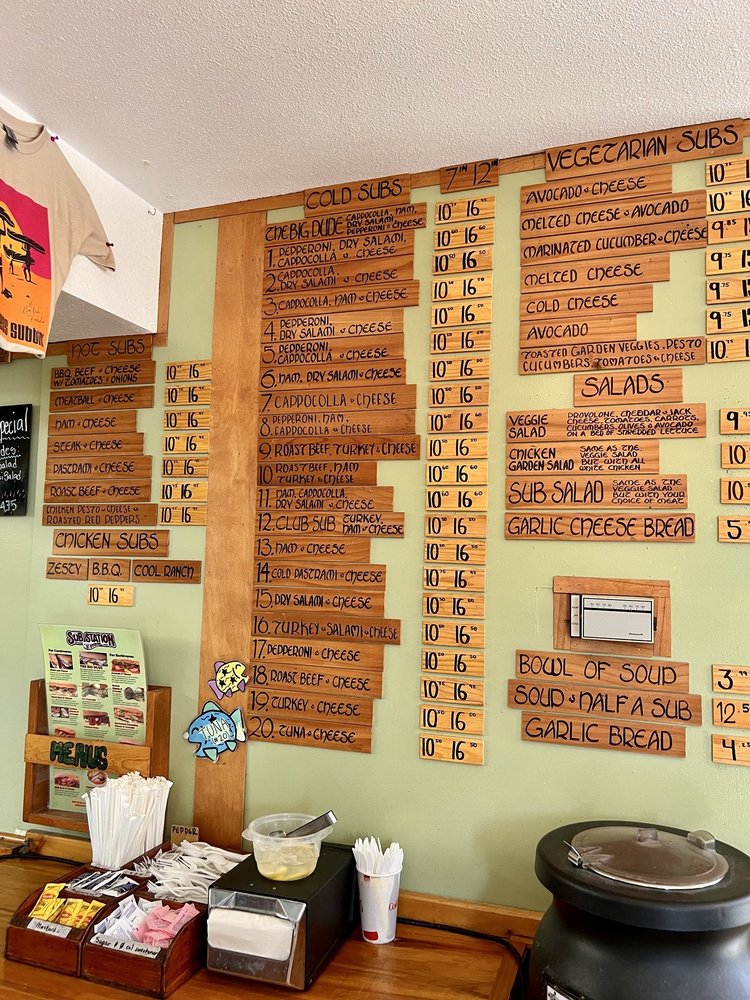 COLD SUBS
7 IN 12 IN
THE BIG DUDE CAPPOCOLLA, HAM, DRY SALAMI, PEPPERONI & CHEESE 10 16
1. PEPPERONI, DRY SALAMI, CAPPOCOLLA & CHEESE 10 16
2. CAPPOCOLLA, DRY SALAMI & CHEESE 10 16
3. CAPPOCOLLA, HAM & CHEESE 10 16
4. PEPPERONI, DRY SALAMI & CHEESE 10 16
5. PEPPERONI, CAPPOCOLLA & CHEESE 10 16
6. HAM, DRY SALAMI & CHEESE 10 16
7. CAPPOCOLLA & CHEESE 10 16
8. PEPPERONI, HAM, CAPPOCOLLA & CHEESE 10 16
9. ROAST BEEF, TURKEY & CHEESE 10 16
10. ROAST BEEF, HAM TURKEY & CHEESE 10 16
11. HAM, CAPPOCOLLA, DRY SALAMI & CHEESE 10 16
12. CLUB SUB TURKEY, HAM & CHEESE 10 16
13. HAM & CHEESE 10 16
14. COLD PASTRAMI & CHEESE 10 16
15. DRY SALAMI & CHEESE 10 16
16. TURKEY & SALAMI & CHEESE 10 16
17. PEPPERONI & CHEESE 10 16
18. ROAST BEEF & CHEESE 10 16
19. TURKEY & CHEESE 10 16
20. TUNA & CHEESE 10 16
VEGETARIAN SUBS
AVOCADO & CHEESE 10
MELTED CHEESE & AVOCADO 10
MARINATED CUCUMBER & CHEESE 9.85
MELTED CHEESE 9.75
COLD CHEESE 9.75
AVOCADO 9.75
TOASTED GARDEN VEGGIES, PESTO CUCUMBERS, TOMATOES & CHEESE 10.75
SALADS
VEGGIE SALAD
PROVOLONE, CHEDDAR & JACK
CHEESE, TOMATOES, CARROTS,
CUCUMBERS, OLIVES & AVOCADO
ON A BED OF SHREDDED LETTUCE
9
CHICKEN GARDEN SALAD
SAME AS THE
VEGGIE SALAD
BUT WITH ALL
WHITE CHICKEN
10
SUB SALAD
SAME AS THE
VEGGIE SALAD
BUT WITH YOUR
CHOICE OF MEAT
10
GARLIC CHEESE BREAD 5
Honeywell
BOWL OF SOUP 3
SOUP & HALF A SUB 12.5
GARLIC BREAD 4
HOT SUBS
BBQ BEEF & CHEESE W/ TOMATOES & ONIONS 10 16
MEATBALL & CHEESE 10 16
HAM & CHEESE 10 16
STEAK & CHEESE 10 16
PASTRAMI & CHEESE 10 16
ROAST BEEF & CHEESE 10 16
CHICKEN PESTO & CHEESE W/ ROASTED RED PEPPERS 10 16
CHICKEN SUBS
ZESTY B.B.Q. COOL RANCH
10 16
Special
SUB STATION
MENUS
TUNA
PEPPER
Mustard
Sugar & 0 cal sweetener